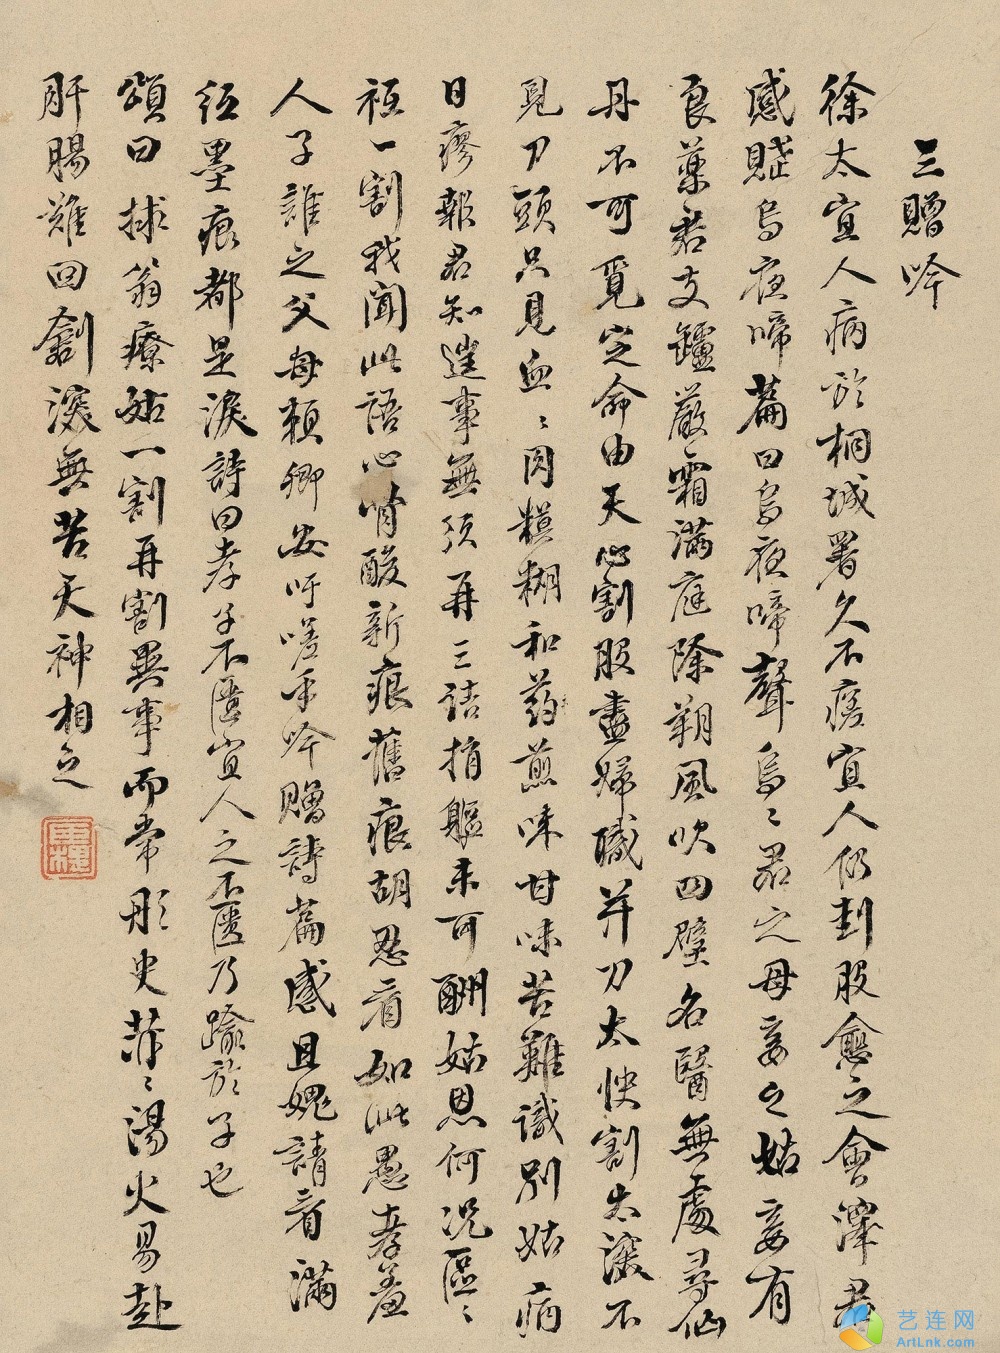 三贈吟
徐太宜人病於桐城署久不瘥宜人仍刲股愈之會澤君
感賦烏夜啼篇曰烏夜啼聲烏〻君之母妾之姑妾有
良藥君支鑪嚴霜滿庭除朔風吹四壁名醫無處尋仙
丹不可覓定命由天心割股盡婦職并刀太快割太深不
見刀頭只見血〻肉糢糊和药煎味甘味苦難識別姑病
日瘳報君知造事無須再三詰捐軀未可酬姑恩何況區〻
祗一割我聞此語心骨酸新痕舊痕胡忍看如此愚孝羞
人子誰之父母賴卿安吁嗟乎吟贈詩篇感且媿請看滿
紙墨痕都是淚詩曰孝子不匱宜人之不匱乃踰於子也
頌曰 翁療姑一割再割異事而常彤史 〻湯火易赴
肝腸難回創深無苦天神相之
艺连网
ArtLnk.com